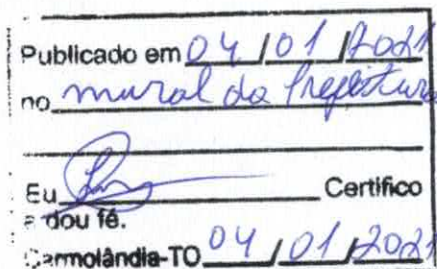 Publicado em 04 / 01 / 2021
no mural da Prefeitura
Eu Certifico
e dou fé.
Carmolândia-TO 04 / 01 / 2021